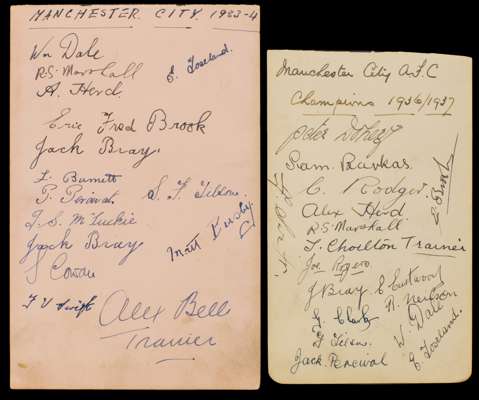 MANCHESTER CITY. 1933-4
Wm Dale
R.S. Marshall
A. Herd.
E. Toseland.
Eric Fred Brook
Jack Bray.
L. Barnett
P. Percival.
S. F. Tilson.
J. S. McLuckie
Matt Busby.
Jack Bray
S Cowan
F V Swift
Alex Bell
Trainer
Manchester City A.F.C
Champions 1936/1937
Peter Doherty
Sam. Barkas.
C. Rodger.
Alex Herd.
R.S. Marshall
E Brook
L. Chorlton Trainer
Joe Rogers
J Bray
E Eastwood
R. Neilson
G. Clark
W. Dale
F. Tilson.
E. Toseland.
Jack. Percival